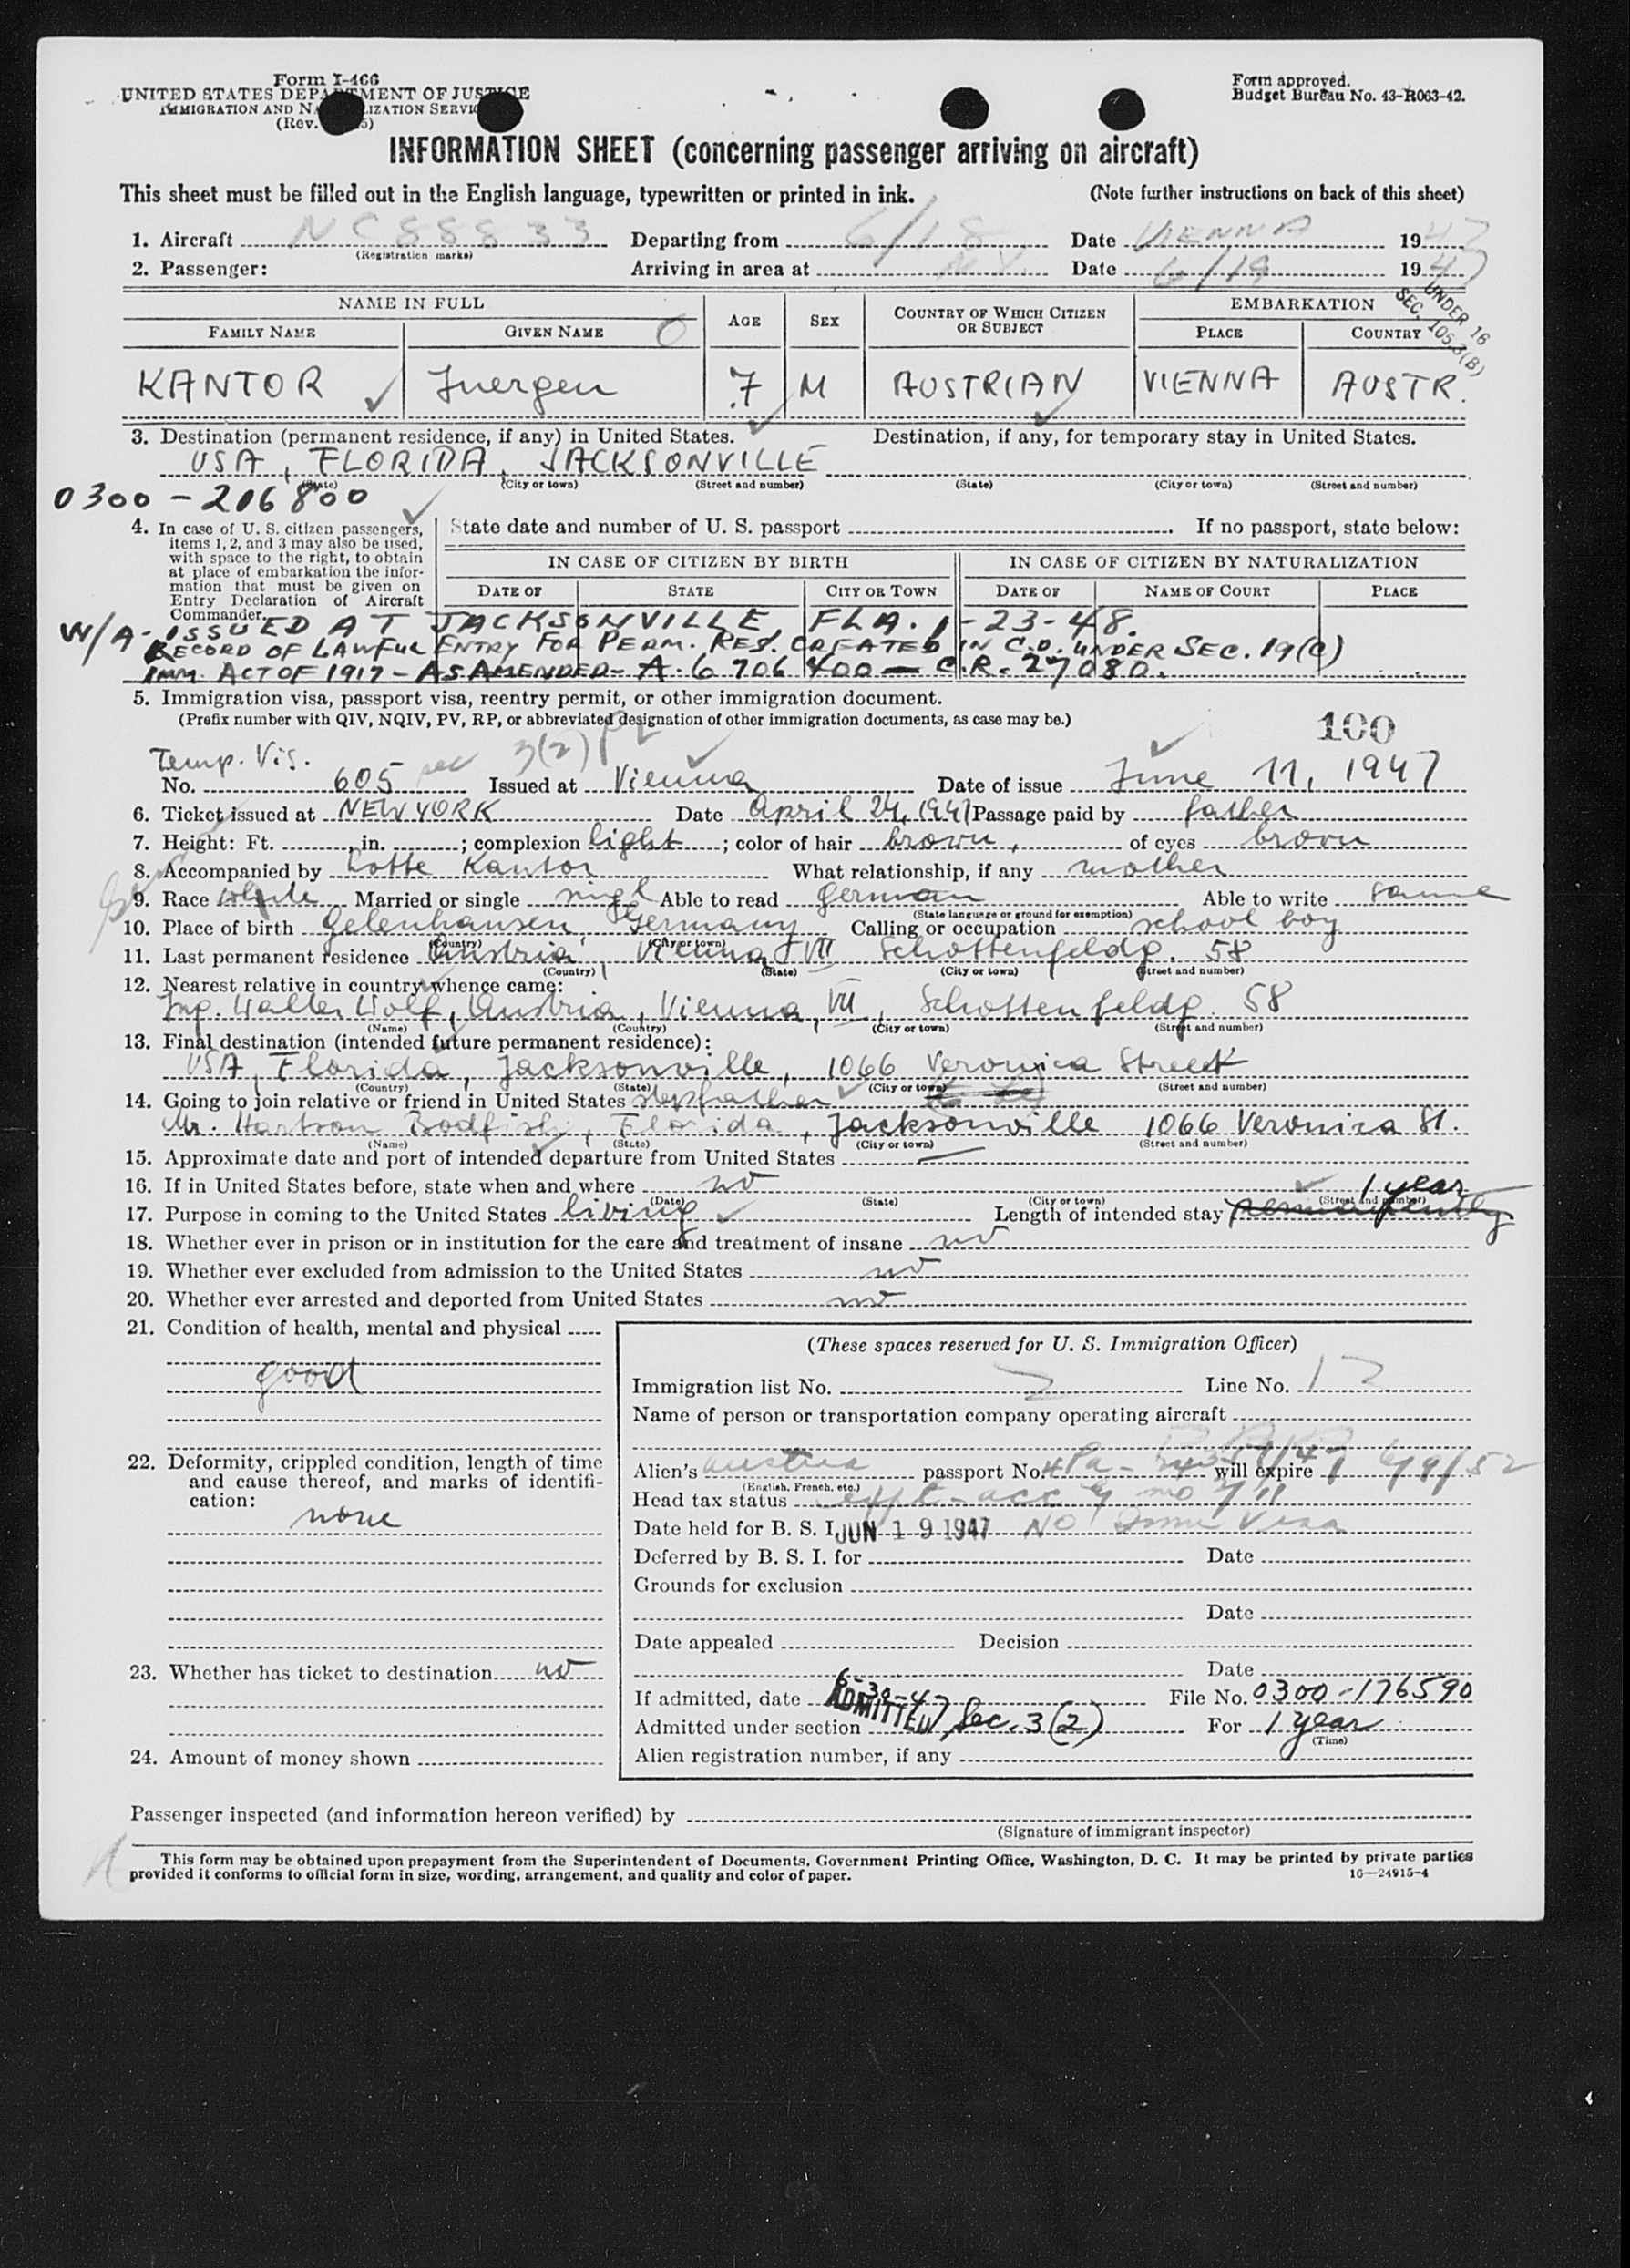 Form I-466
UNITED STATES DEPARTMENT OF JUSTICE
IMMIGRATION AND NATURALIZATION SERVICE
(Rev.
Form approved.
Budget Bureau No. 43-R063-42.
INFORMATION SHEET (concerning passenger arriving on aircraft)
This sheet must be filled out in the English language, typewritten or printed in ink. (Note further instructions on back of this sheet)
1. Aircraft NC88833 Departing from 6/18 Date VIENNA 1947
(Registration marks)
2. Passenger: Arriving in area at N.Y. Date 6/19 1947
UNDER 16
SEC. 105.3(B)
NAME IN FULL AGE SEX COUNTRY OF WHICH CITIZEN OR SUBJECT EMBARKATION
FAMILY NAME GIVEN NAME PLACE COUNTRY
KANTOR Juergen 7 M AUSTRIAN VIENNA AUSTR.
3. Destination (permanent residence, if any) in United States. Destination, if any, for temporary stay in United States.
USA, FLORIDA, JACKSONVILLE
(State) (City or town) (Street and number) (State) (City or town) (Street and number)
0300-206800
4. In case of U. S. citizen passengers, items 1, 2, and 3 may also be used, with space to the right, to obtain at place of embarkation the information that must be given on Entry Declaration of Aircraft Commander.
State date and number of U. S. passport If no passport, state below:
IN CASE OF CITIZEN BY BIRTH IN CASE OF CITIZEN BY NATURALIZATION
DATE OF STATE CITY OR TOWN DATE OF NAME OF COURT PLACE
W/A- ISSUED AT JACKSONVILLE, FLA. 1-23-48.
RECORD OF LAWFUL ENTRY FOR PERM. RES. CREATED IN C.O. UNDER SEC. 19(C)
IMM. ACT OF 1917 - AS AMENDED - A-6 706 400 - C.R. 27080.
5. Immigration visa, passport visa, reentry permit, or other immigration document.
(Prefix number with QIV, NQIV, PV, RP, or abbreviated designation of other immigration documents, as case may be.)
100
Temp. Vis. 3(2)
No. 605 Issued at Vienna Date of issue June 11, 1947
6. Ticket issued at NEW YORK Date April 24, 1947 Passage paid by father
7. Height: Ft. , in. ; complexion light ; color of hair brown, of eyes brown
8. Accompanied by Lotte Kantor What relationship, if any mother
9. Race white Married or single singl Able to read german Able to write same
(State language or ground for exemption)
10. Place of birth Gelenhausen, Germany Calling or occupation school boy
(Country) (City or town)
11. Last permanent residence Austria, Vienna VII Schottenfeldg. 58
(Country) (State) (City or town) (Street and number)
12. Nearest relative in country whence came:
Ing. Walter Wolf, Austria, Vienna, VII, Schottenfeldg. 58
(Name) (Country) (City or town) (Street and number)
13. Final destination (intended future permanent residence):
USA, Florida, Jacksonville, 1066 Veronica Street
(Country) (State) (City or town) (Street and number)
14. Going to join relative or friend in United States stepfather
Mr. Bodfish, Florida, Jacksonville 1066 Veronica St.
(Name) (State) (City or town) (Street and number)
15. Approximate date and port of intended departure from United States —
16. If in United States before, state when and where no
(Date) (State) (City or town) (Street and number)
1 year
17. Purpose in coming to the United States living Length of intended stay permanently
18. Whether ever in prison or in institution for the care and treatment of insane no
19. Whether ever excluded from admission to the United States no
20. Whether ever arrested and deported from United States no
21. Condition of health, mental and physical
good
22. Deformity, crippled condition, length of time and cause thereof, and marks of identification:
none
23. Whether has ticket to destination no
24. Amount of money shown
(These spaces reserved for U. S. Immigration Officer)
Immigration list No. 2 Line No. 12
Name of person or transportation company operating aircraft
Alien's Austria passport No. will expire 6/9/52
(English, French, etc.)
Head tax status
Date held for B. S. I. JUN 19 1947 NO Imm Visa
Deferred by B. S. I. for Date
Grounds for exclusion
Date
Date appealed Decision
Date
If admitted, date 6-30-47 File No. 0300-176590
ADMITTED
Admitted under section Sec. 3(2) For 1 year
(Time)
Alien registration number, if any
Passenger inspected (and information hereon verified) by
(Signature of immigrant inspector)
This form may be obtained upon prepayment from the Superintendent of Documents, Government Printing Office, Washington, D. C. It may be printed by private parties
provided it conforms to official form in size, wording, arrangement, and quality and color of paper. 16—24915-4